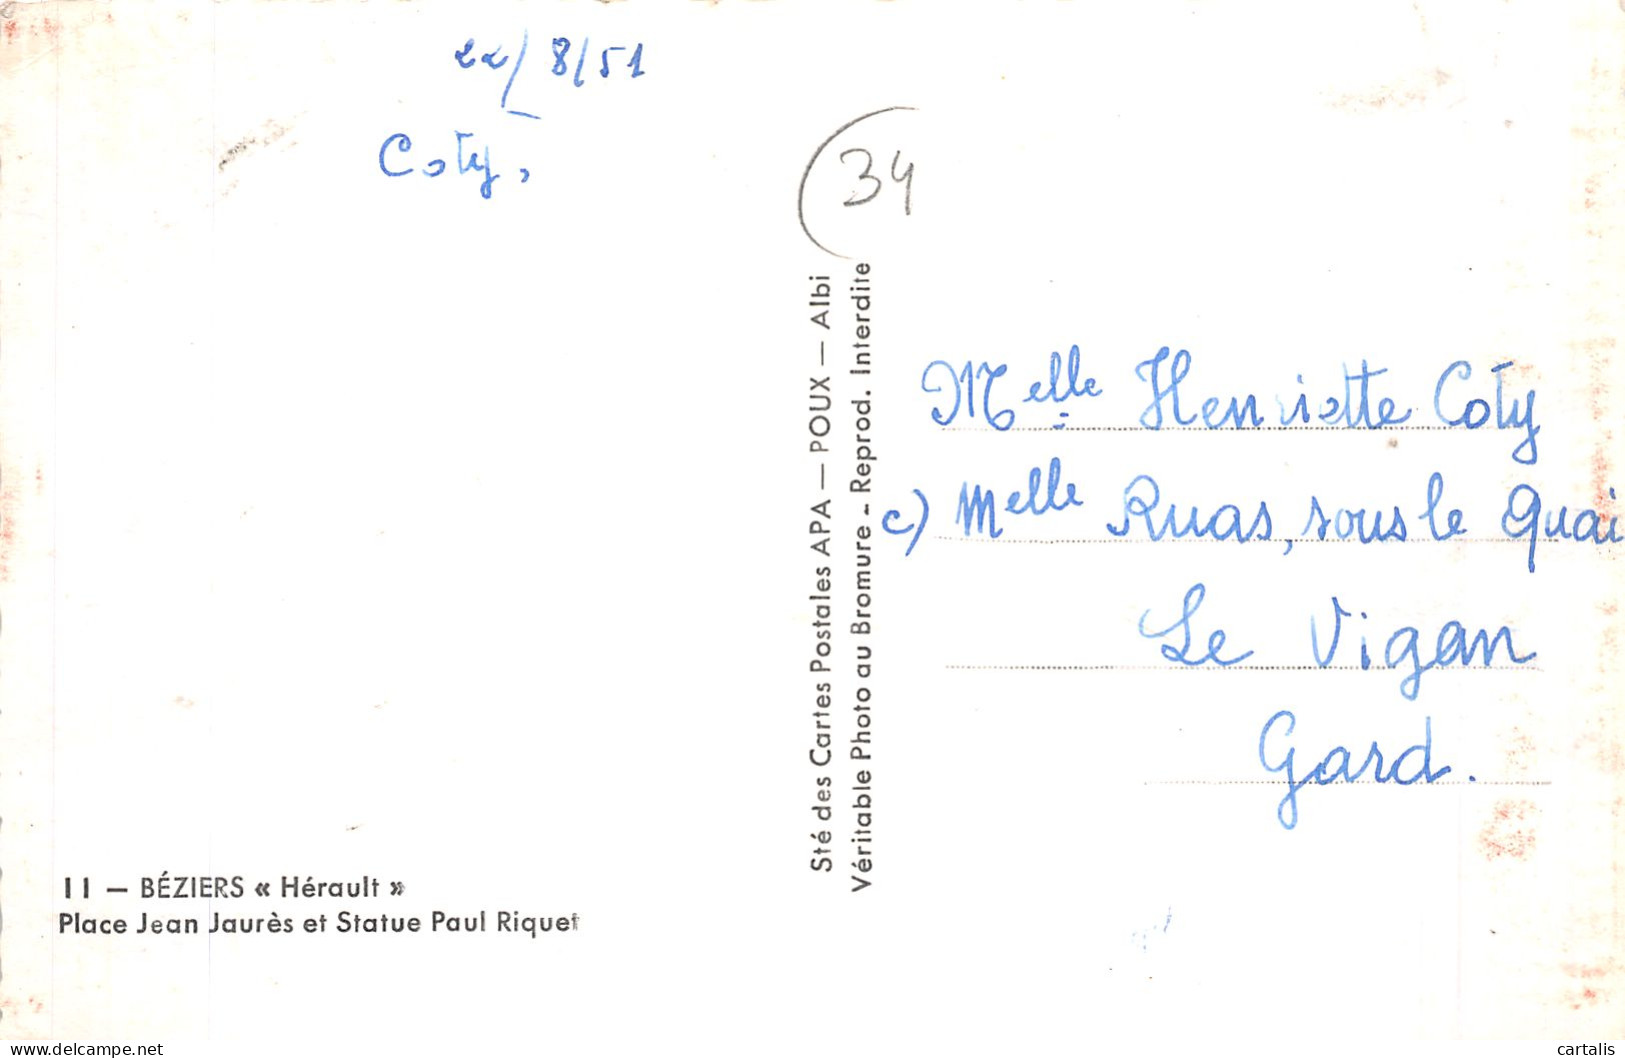 22/8/51
Coty,
(34
Sté des Cartes Postales APA — POUX — Albi
Véritable Photo au Bromure - Reprod. Interdite
Melle Henriette Coty
c) Melle Ruas, sous le Quai
Le Vigan
Gard.
11 — BÉZIERS « Hérault »
Place Jean Jaurès et Statue Paul Riquet
www.delcampe.net
cartalis